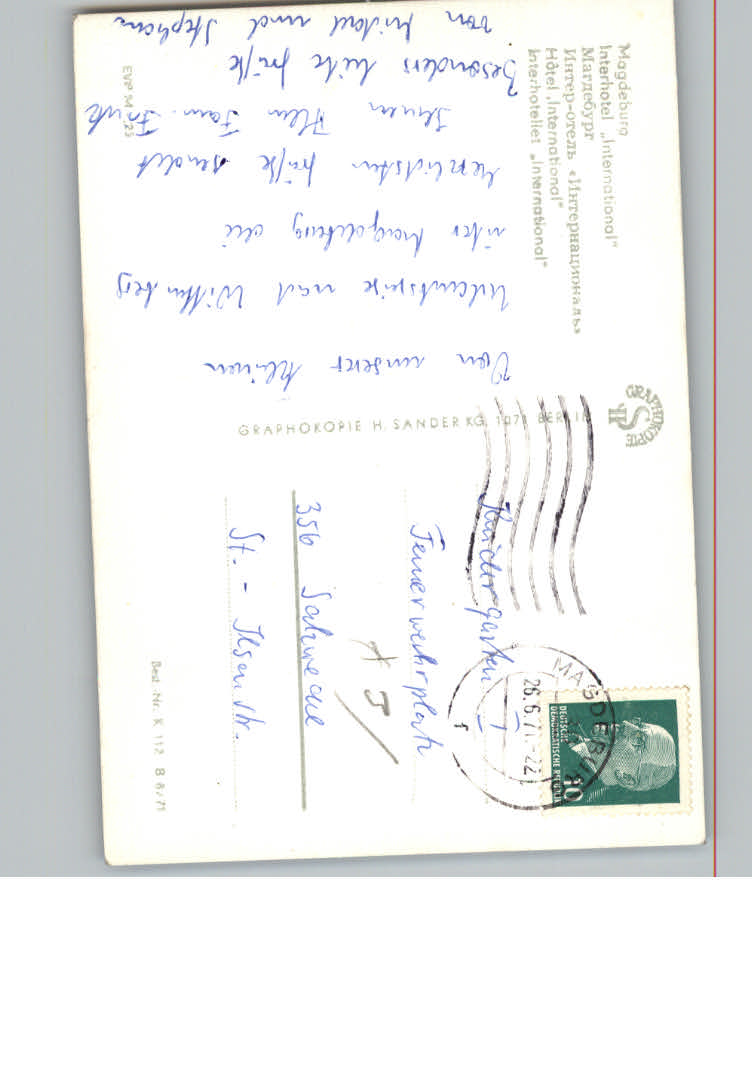 Magdeburg
Interhotel „International"
Магдебург
Интер-отель «Интернациональ»
Hôtel „International"
Interhotelles „International"
Von unserer kleinen
Urlaubsreise nach Wittenberg
über Magdeburg die
herzlichsten Grüße sendet
Ihnen Allen Fam.
Besonders liebe Grüße
von und Stephan
EVP M
GRAPHOKOPIE H. SANDER KG, 1071 BERLIN
GRAPHOKOPIE
HS
MAGDEBURG
26.6.71.-22
DEUTSCHE
DEMOKRATISCHE REPUBLIK
Kindergarten I
Feuerwehrplatz
356 Salzwedel
St. - Ilsenstr.
Best.-Nr. K 112 B 6/71